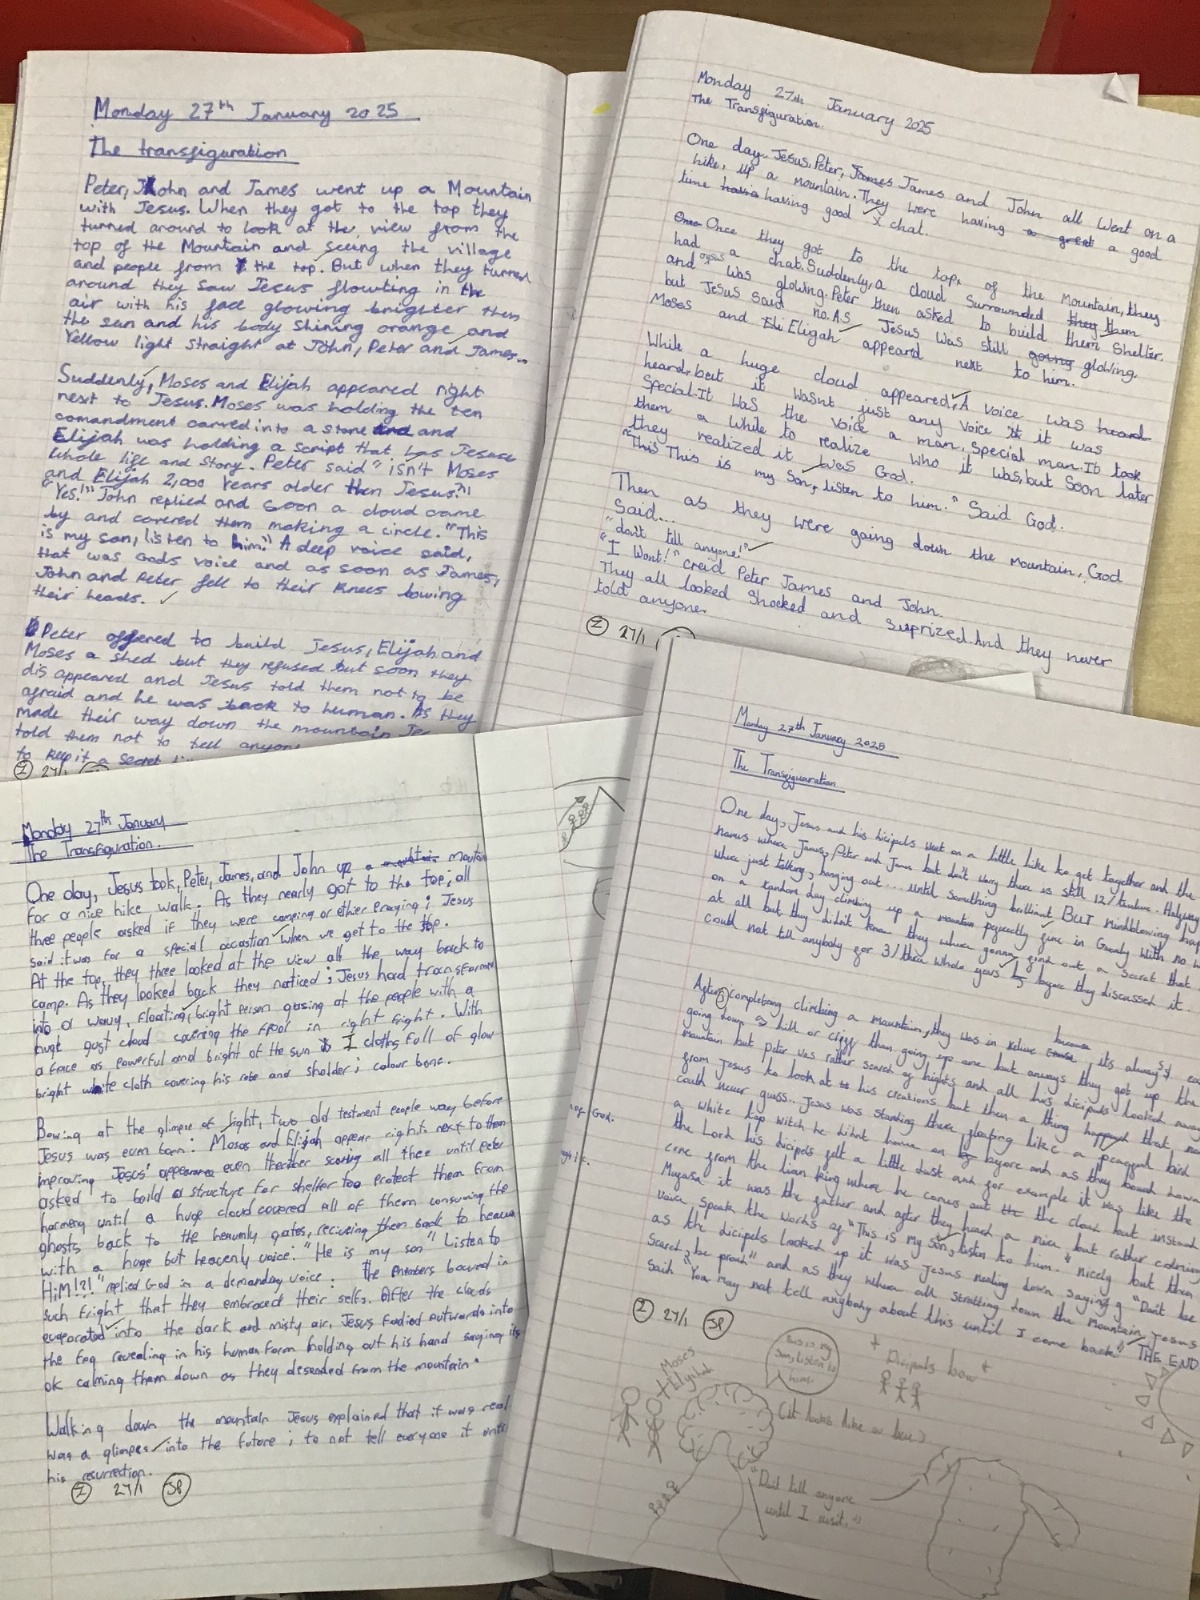 Monday 27th January 2025
The transfiguration
Peter, John and James went up a Mountain
with Jesus. When they got to the top they
turned around to look at the view from the
top of the Mountain and seeing the village
and people from the top. But when they turned
around they saw Jesus flowting in the
air with his face glowing brighter then
the sun and his body shining orange and
Yellow light straight at John, Peter and James..
Suddenly, Moses and Elijah appeared right
next to Jesus. Moses was holding the ten
comandment carved into a stone and and
Elijah was holding a script that has Jesuse
whole life and Story. Peter said "isn't Moses
and Elijah 2,000 Years older then Jesus?"
"Yes!" John replied and soon a cloud came
by and covered them making a circle. "This
is my son, listen to him." A deep voice said,
that was Gods voice and as soon as James,
John and Peter fell to their Knees bowing
their heads.
Peter offered to build Jesus, Elijah and
Moses a shed but they refused but soon they
disappeared and Jesus told them not to be
afraid and he was back to human. As they
made their way down the mountain Je
told them not to tell anyon
to keep it a secret
I 27/1
Monday 27th January 2025
The Transfiguration.
One day, Jesus, Peter, James James and John all Went on a
hike, up a mountain. They were having a great a good
time having good chat.
Once Once they got to the top, of the Mountain, they
had a chat. Suddenly, a cloud surrounded they them
and Jesus was glowing. Peter then asked to build them Shelter.
but Jesus said no. As Jesus was still going glowing.
Moses and Eli Eligah appeared next to him.
While a huge cloud appeared, A voice was heard
heard, but it wasnt just any voice it it was
Special. It was the voice a man, special man. It took
them a while to realize who it was, but Soon later
they realized it was God.
"This This is my Son, listen to him." Said God.
Then as they were going down the mountain, God
Said...
"don't till anyone!"
"I Wont!" creid Peter James and John.
They all looked Shocked and Suprized. And they never
told anyone.
I 27/1
Monday 27th January
The Transfiguration.
One day, Jesus took, Peter, James, and John up a mountain
for a nice hike walk. As they nearly got to the top; all
three people asked if they were camping or ether Praying; Jesus
said it was for a special occastion when we get to the top.
At the top, they three looked at the view all the way back to
camp. As they looked back they noticed; Jesus had transformed
into a wavy, floating, bright person gasing at the people with a
huge gust cloud covering the floor in right fright. With
a face as powerful and bright of the sun cloths full of glow
bright white cloth covering his robe and sholder; colour bone.
Bowing at the glimpse of light, two old testment people way before
Jesus was even born: Moses and Elijah appear right next to them
improving Jesus' appearance even thoether scaring all thee until Peter
asked to build a structure for shelter too protect them from
harming until a huge cloud covered all of them consuming the
ghosts back to the heavenly gates, reciving them back to heaven
with a huge but heavenly voice: "He is my son" Listen to
HiM!?!" replied God in a demanding voice. The bowed in
such fright that they embraced their selfs. After the clouds
evaporated into the dark and misty air, Jesus fadied outwards into
the fog revealing in his human form holding out his hand saying its
ok calming them down as they desended from the mountain.
Walking down the mountain Jesus explained that it was real
was a glimpes into the future; to not tell everyone it until
his resurrection.
I 27/1 SP
of God.
Monday 27th January 2025
The Transfiguaration
One day, Jesus and his dicipals went on a little hike to get together and the
names where James, Peter and John but don't wory there is still 12/twelve. Halfway
where just talking, hanging out... until something brilliant BUT mindblowing hap
on a random day climbing up a mountain pefectly fine in Gandy with no w
at all but they didn't know they where gonna find out a secret that
could not till anybody for 3/three whole years before they discussed it.
After completeing climbing a mountain, they was in relive because its always ea
going down a hill or cliff than going up one but anways they got up the
mountain but peter was rather scared of hights and all his dicipals looked away
from Jesus to look at his creations but then a thing happend that,
could never guess.. Jesus was standing there floating like a bird
a white top witch he didnt have on before and as they bowed down
the Lord his dicipals felt a little dust and for example it was like the
cene from the lion king where he comes out the cloud but instead
Mufasa it was the father and after they heard a nice but rather calming
voice speak the words of "This is my Son, listen to him." nicely but then
as the dicipals looked up it was Jesus nealing down saying "Don't be
Scared, be proud" and as they where all strotting down the Mountain, Jesus
said "You may not tell anybody about this until I come back" THE END
I 27/1 SP
Moses
+ Elijah
This is my
Son, listen to
him.
+ Dicipals bow +
"Dont till anyone
until I